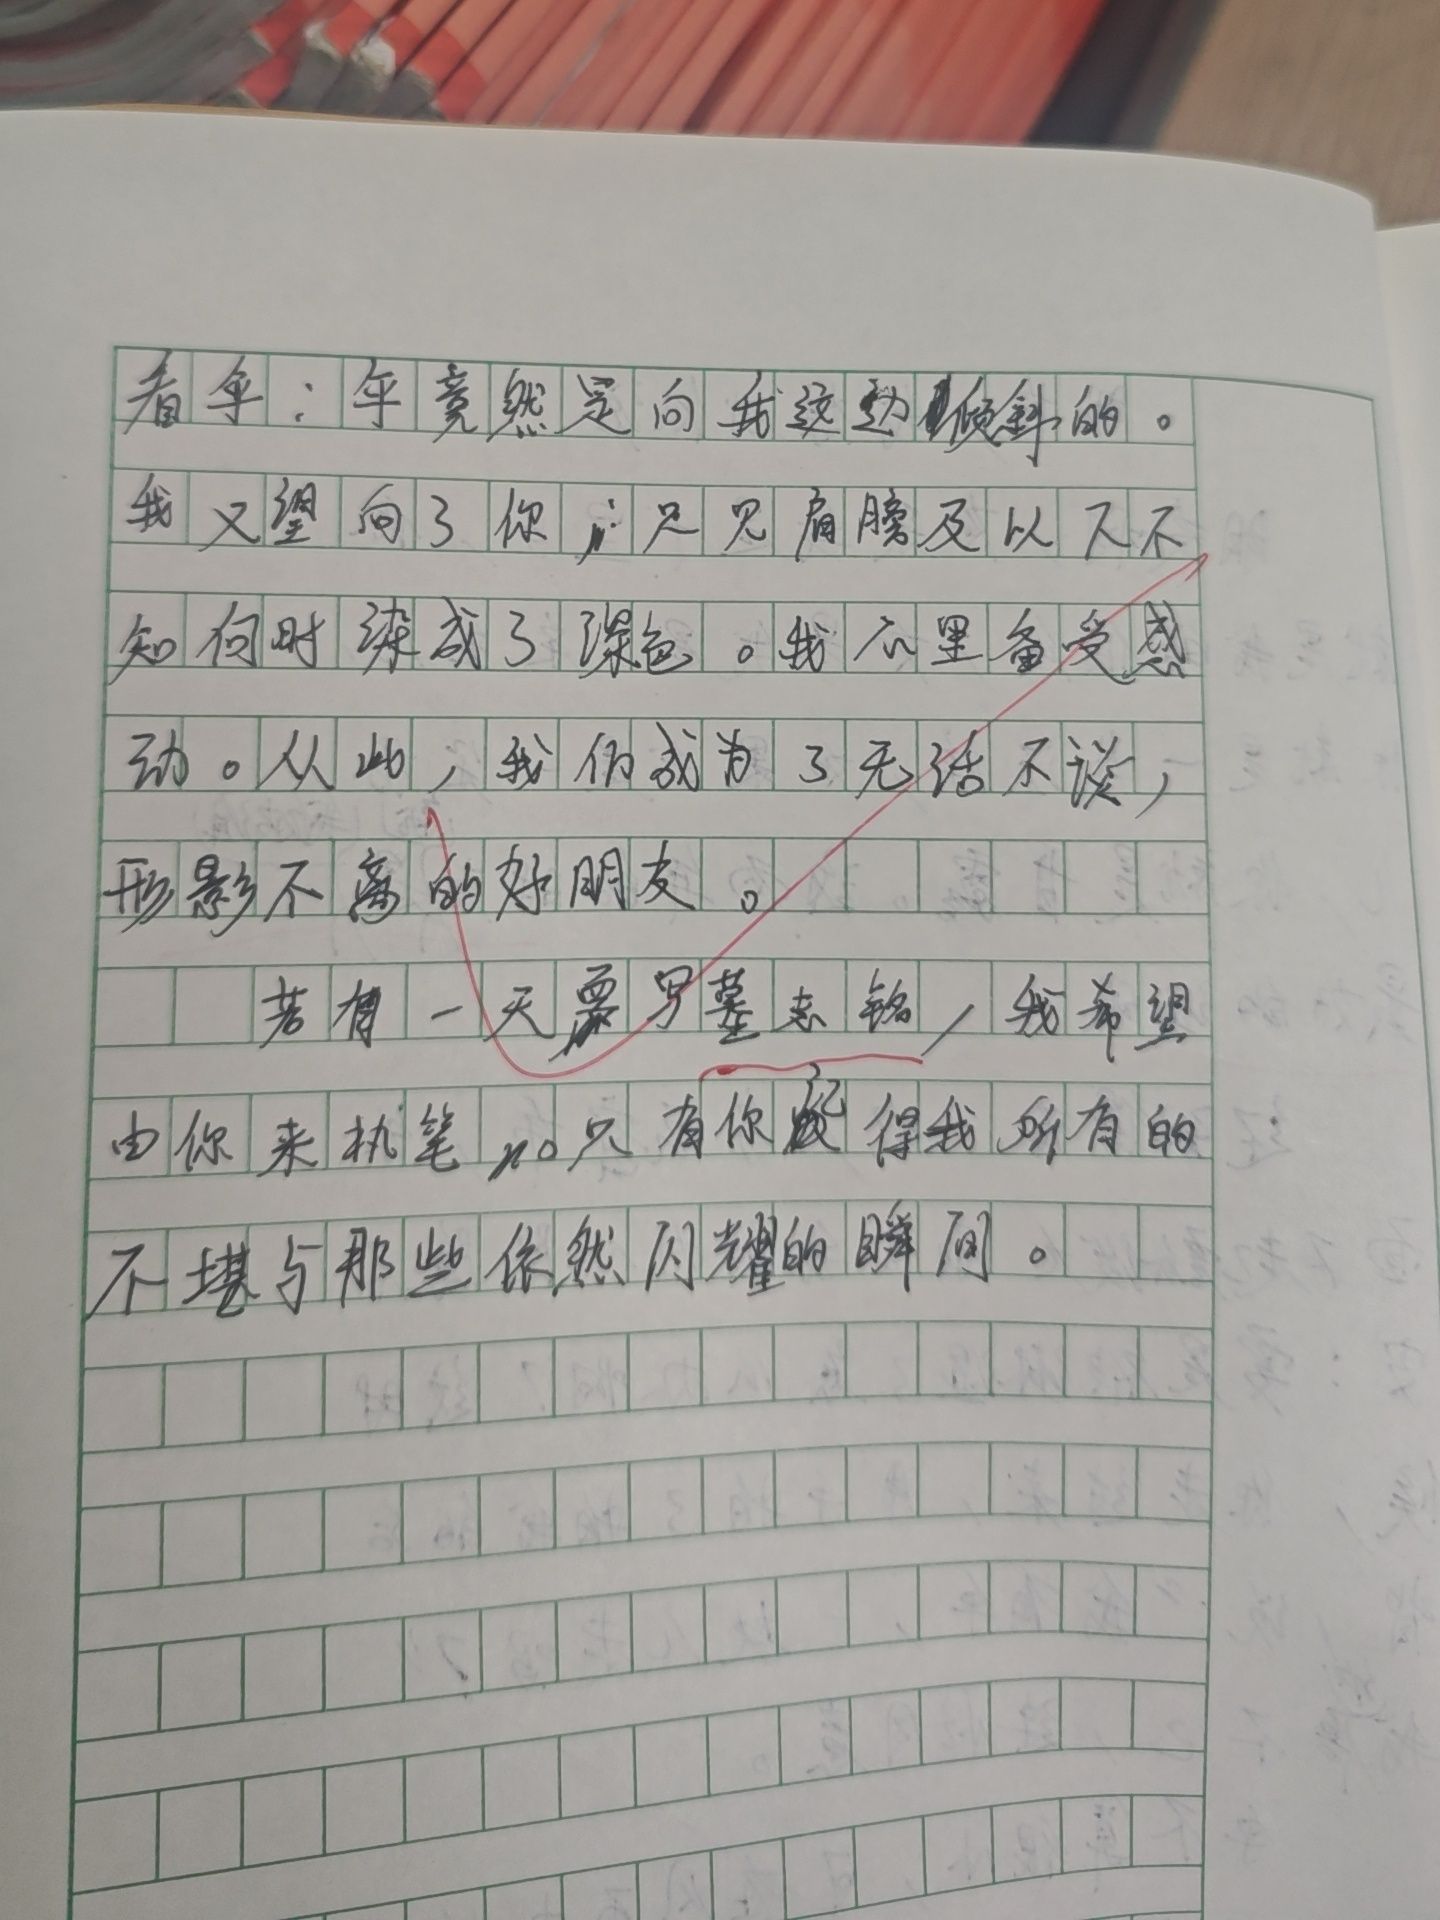 看伞：伞竟然是向我这边倾斜的。
我又望向了你，只见肩膀及以下不
知何时染成了深色。我心里备受感
动。从此，我们成为了无话不谈，
形影不离的好朋友。
若有一天要写墓志铭，我希望
由你来执笔。只有你记得我所有的
不堪与那些依然闪耀的瞬间。